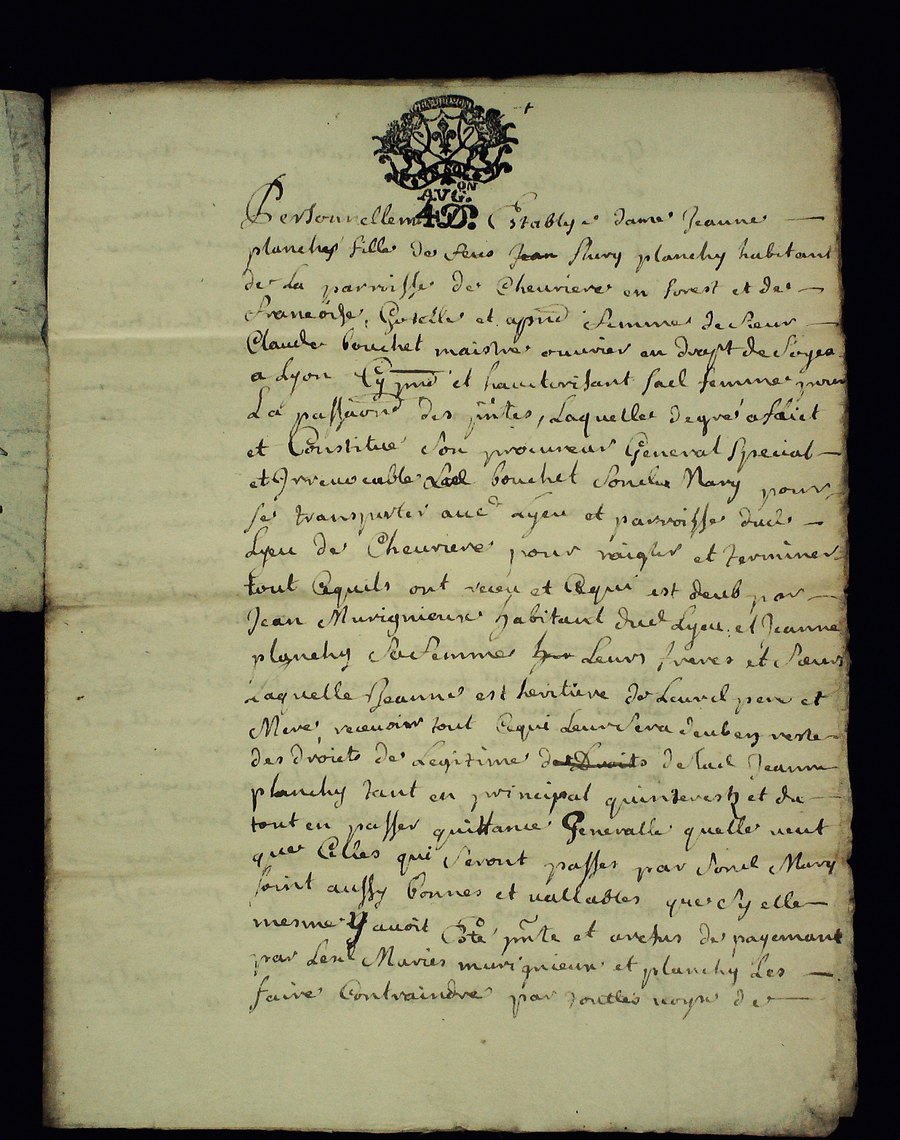 GEN DE LYON
AVG.ON
4D.
Personnellem Establye dame Jeanne
planchy fille de feus Jean Flury planchy habitant
de La parroisse de Cheuriere en forest et de
Francoise Goselle et apnd femme de sieur
Claude bouchet maistre ouurier en drapt de soyes
a Lyon Cy pnd et hauterisant sad femme pour
La passaond des pntes, Laquelle degré a faict
et Constitue Son procureur General special
et Irreuocable Led bouchet Sondict Mary pour
se transporter aud Lyeu et parroisse dud
Lyeu de Cheuriere pour raigler et terminer
tout Cequils ont receu et Cequi est deub par
Jean Murignieux habitant dud Lyeu, et Jeanne
planchy Sa femme Leurs freres et Sœurs
Laquelle Jeanne est heritiere de Leursd pere et
Mere receuoir tout Cequi Leur Sera deub en reste
des droicts de Legitime des Droits de lad Jeanne
planchy tant en principal quinterestz et du
tout en passer quittance Generalle quelle veut
que Celles qui Seront passes par Sond Mary
soint aussy bonnes et vallables que Sy elle
mesme y auoit Esté pnte et arefus de payemant
par Lesd Mariés murignieux et planchy Les
faire Contraindre par touttes voyes de